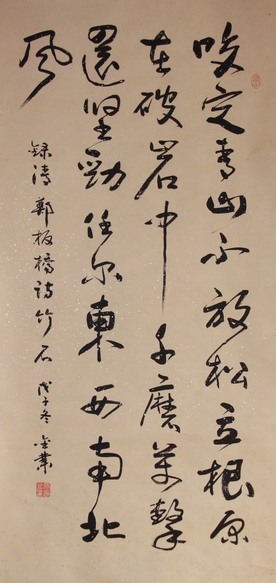 咬定青山不放松立根原
在破岩中千磨萬擊
還坚勁任尔東西南北
风
録清鄭板橋詩竹石 戊子冬